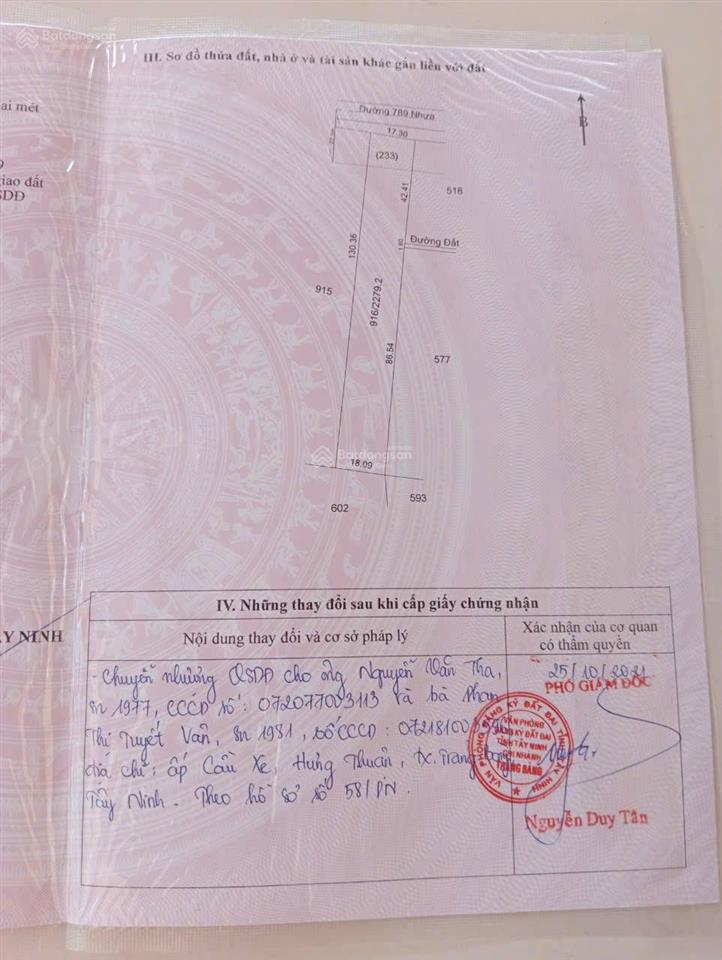 Batdongsan
III. Sơ đồ thửa đất, nhà ở và tài sản khác gắn liền với đất
ai mét
giao đất
SDĐ
Đường 789 Nhựa
17.30
(233)
B
42.41
518
130.36
1.60
Đường Đất
915
916/2279.2
86.54
577
Batdongsan
18.09
593
602
ÂY NINH
IV. Những thay đổi sau khi cấp giấy chứng nhận
Nội dung thay đổi và cơ sở pháp lý
Xác nhận của cơ quan
có thẩm quyền
- Chuyển nhượng QSDĐ cho ông Nguyễn Văn Tha,
sn 1977, CCCD số: 072077003113 và bà Phan
Thị Tuyết Vân, sn 1981, số CCCD:
địa chỉ: ấp Cầu Xe, Hưng Thuận, TX. Trảng Bàng,
Tây Ninh. Theo hồ sơ số 581/PN.
25/10/2021
PHÓ GIÁM ĐỐC
VĂN PHÒNG ĐĂNG KÝ ĐẤT ĐAI TỈNH TÂY NINH
VĂN PHÒNG
ĐĂNG KÝ ĐẤT ĐAI
TỈNH TÂY NINH
CHI NHÁNH
TRẢNG BÀNG
Nguyễn Duy Tân